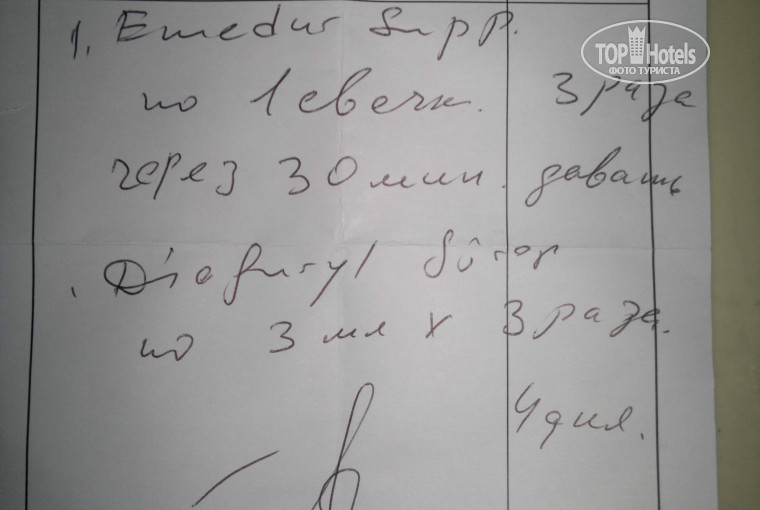 1. Emedur Supp.
по 1 свечк. 3 раза
через 30 мин. давать
. Diafuryl Şürop
по 3 мл х 3 раза.
4 дня.
TOP Hotels
ФОТО ТУРИСТА